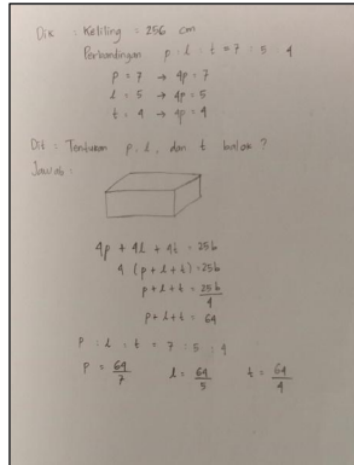 Dik : Keliling = 256 cm
Perbandingan p : l : t = 7 : 5 : 4
p = 7 → 4p = 7
l = 5 → 4p = 5
t = 4 → 4p = 4
Dit : Tentukan p, l, dan t balok ?
Jawab :
4p + 4l + 4t = 256
4 (p + l + t) = 256
p + l + t = 256/4
p + l + t = 64
p : l : t = 7 : 5 : 4
p = 64/7 l = 64/5 t = 64/4